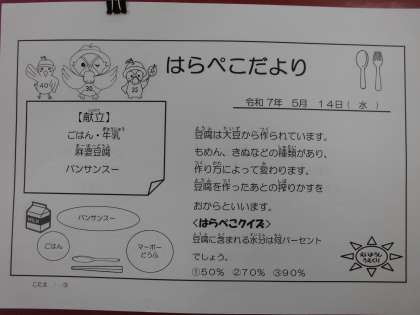 はらぺこだより
令和７年　５月　１４日（　水　）
40
30
25
【献立】
ごはん・牛乳
麻婆豆腐
バンサンスー
豆腐は大豆から作られています。
もめん、きぬなどの種類があり、
作り方によって変わります。
豆腐を作ったあとの搾りかすを
おからといいます。
＜はらぺこクイズ＞
豆腐に含まれる水分は何パーセント
でしょう。
①５０％　②７０％　③９０％
MILK
バンサンスー
ごはん
マーボー
どうふ